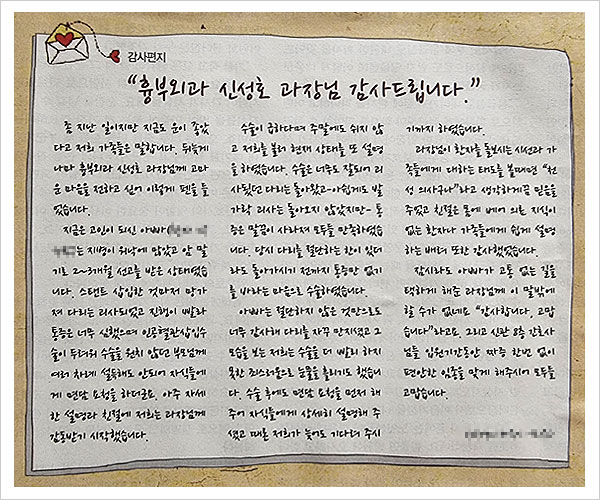 감사편지
“흉부외과 신성호 과장님 감사드립니다.”
좀 지난 일이지만 지금도 운이 좋았
다고 저희 가족들은 말합니다. 뒤늦게
나마 흉부외과 신성호 과장님께 고마
운 마음을 전하고 싶어 이렇게 펜을 들
었습니다.
지금은 고인이 되신 아빠(
는 지병이 워낙에 많았고 암 말
기로 2~3개월 선고를 받은 상태였습
니다. 스탠트 삽입한 것마저 망가
져 다리는 괴사되었고 진행이 빨라
통증은 너무 심했으며 인공혈관삽입수
술이 두려워 수술을 원치 않던 부모님께
여러 차례 설득해도 안되어 자식들에
게 면담 요청을 하더군요. 아주 자세
한 설명과 친절에 저희는 과장님께
감동받기 시작했습니다.
수술이 급하다며 주말에도 쉬지 않
고 저희를 불러 현재 상태를 또 설명
을 하였습니다. 수술은 너무도 잘되어 괴
사됐던 다리는 돌아왔고-아쉽게도 발
가락 괴사는 돌아오지 않았지만- 통
증은 말끔이 사라져 모두들 만족하였습
니다. 당시 다리를 절단하는 한이 있더
라도 돌아가시기 전까지 통증만 없기
를 바라는 마음으로 수술하였습니다.
아빠는 절단하지 않은 것만으로도
너무 감사해 다리를 자꾸 만지셨고 그
모습을 보는 저희는 수술을 더 빨리 하지
못한 죄스러움으로 눈물을 흘리기도 했습니
다. 수술 후에도 면담 요청을 먼저 해
주어 자식들에게 상세히 설명해 주
셨고 때론 저희가 늦어도 기다려 주시
기까지 하였습니다.
과장님이 환자를 돌보시는 시선과 가
족들에게 대하는 태도를 볼때면 “천
성 의사구나”라고 생각하게끔 믿음을
주었고 친절은 몸에 베어 의론 지식이
없는 환자나 가족들에게 쉽게 설명
하는 배려 또한 감사했었습니다.
잠시라도 아빠가 고통 없는 길을
택하게 해준 과장님께 이 말밖에
할 수가 없네요 “감사합니다. 고맙
습니다”라고요. 그리고 신관 8층 간호사
님들 입원기간동안 짜증 한번 없이
편안한 임종을 맞게 해주시어 모두들
고맙습니다.